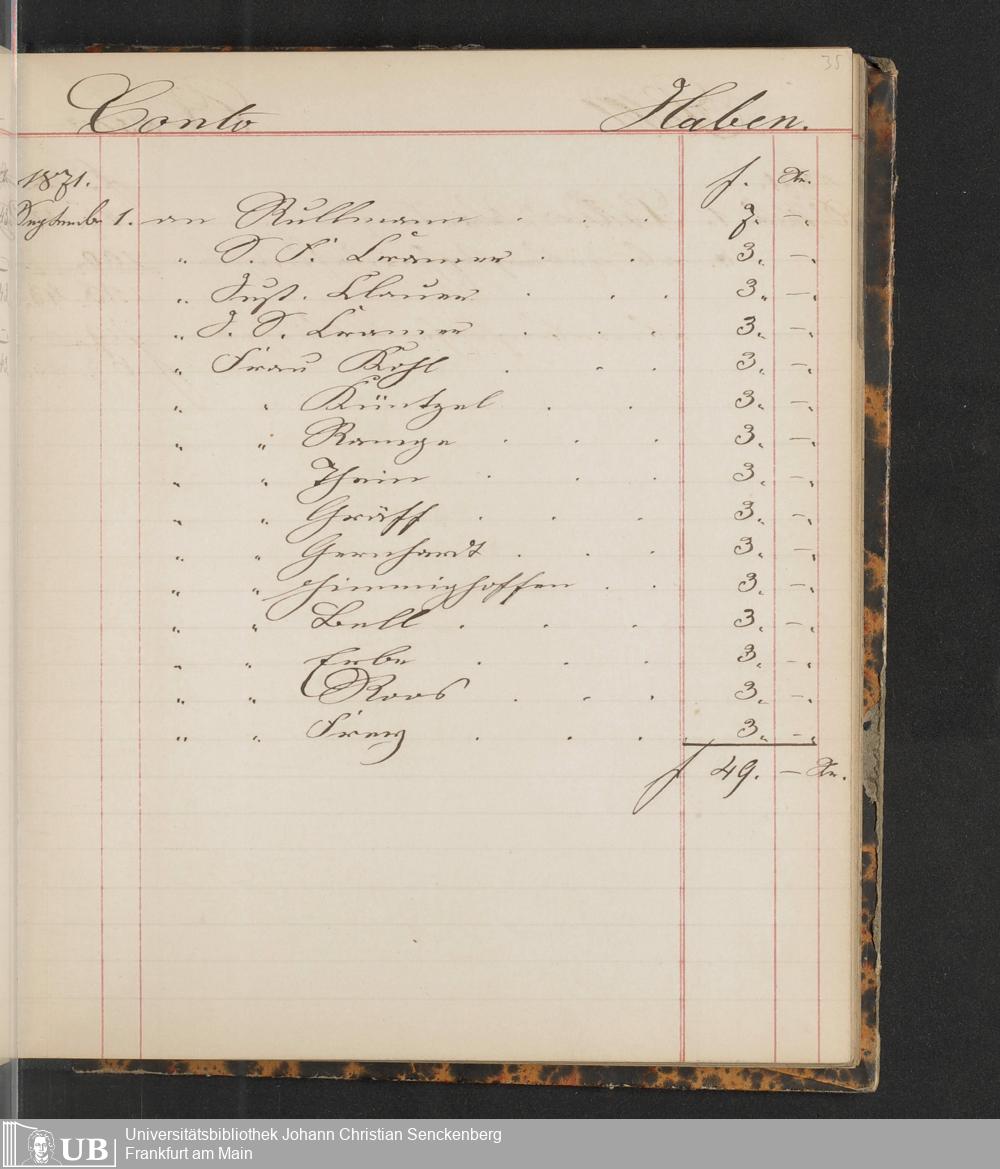 35
Conto Haben.
1871. f. Xr.
September 1. an Rullmann . . . 7. —.
" S. F. Cramer . . 3. —.
" Just. Clauer . . . 3. —.
" J. S. Cramer . . . 3. —.
" Frau Kohl . . . 3. —.
" " Küntzel . . 3. —.
" " Ramge . . . 3. —.
" " Thein . . . 3. —.
" " Gräff . . . 3. —.
" " Gernhardt . . . 3. —.
" " Himmighoffen . . 3. —.
" " Bell . . . 3. —.
" " Erbe . . . 3. —.
" " Roos . . . 3. —.
" " Frey . . . 3. —.
f 49. — Xr.
UB Universitätsbibliothek Johann Christian Senckenberg
Frankfurt am Main